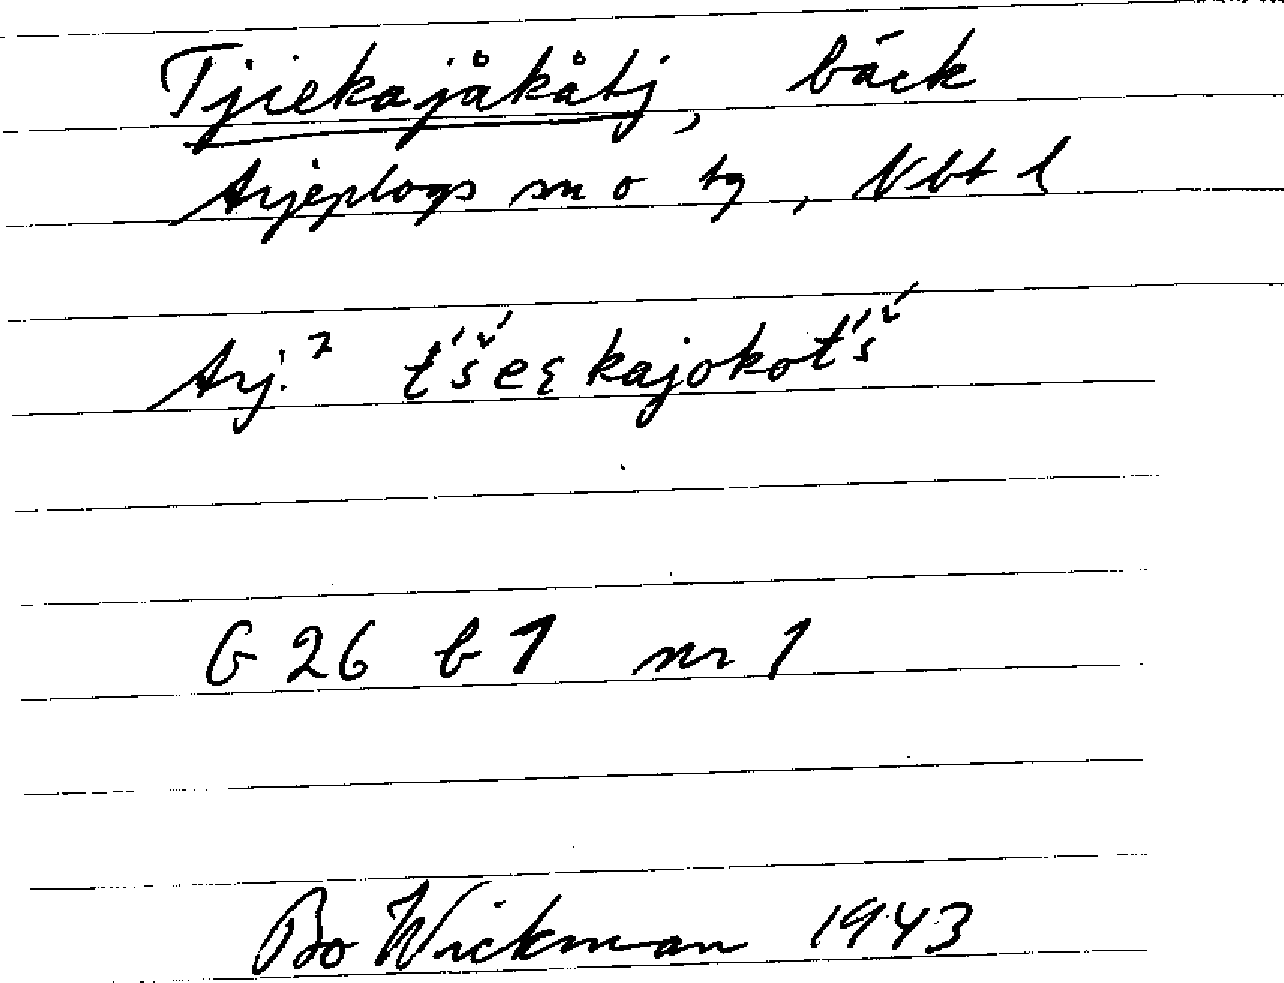 Tjiekajåkåtj, bäck
Arjeplogs sn o tg, Nbt l
Arj.² t́š́eękajokot́š́
G 26 b 1 nr 1
Bo Wickman 1943